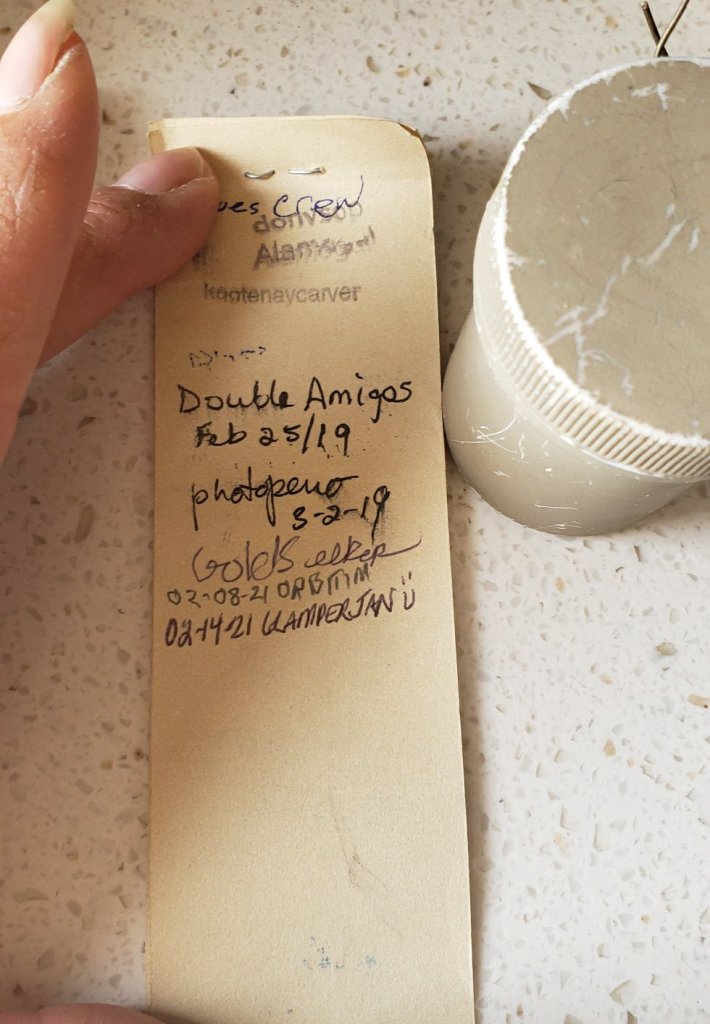 Crew
kootenaycarver
Double Amigos
Feb 25/19
photopeno
3-2-19
GoldSeeker
02-08-21 ORBITIM
02-14-21 GLAMPERJAN Ü